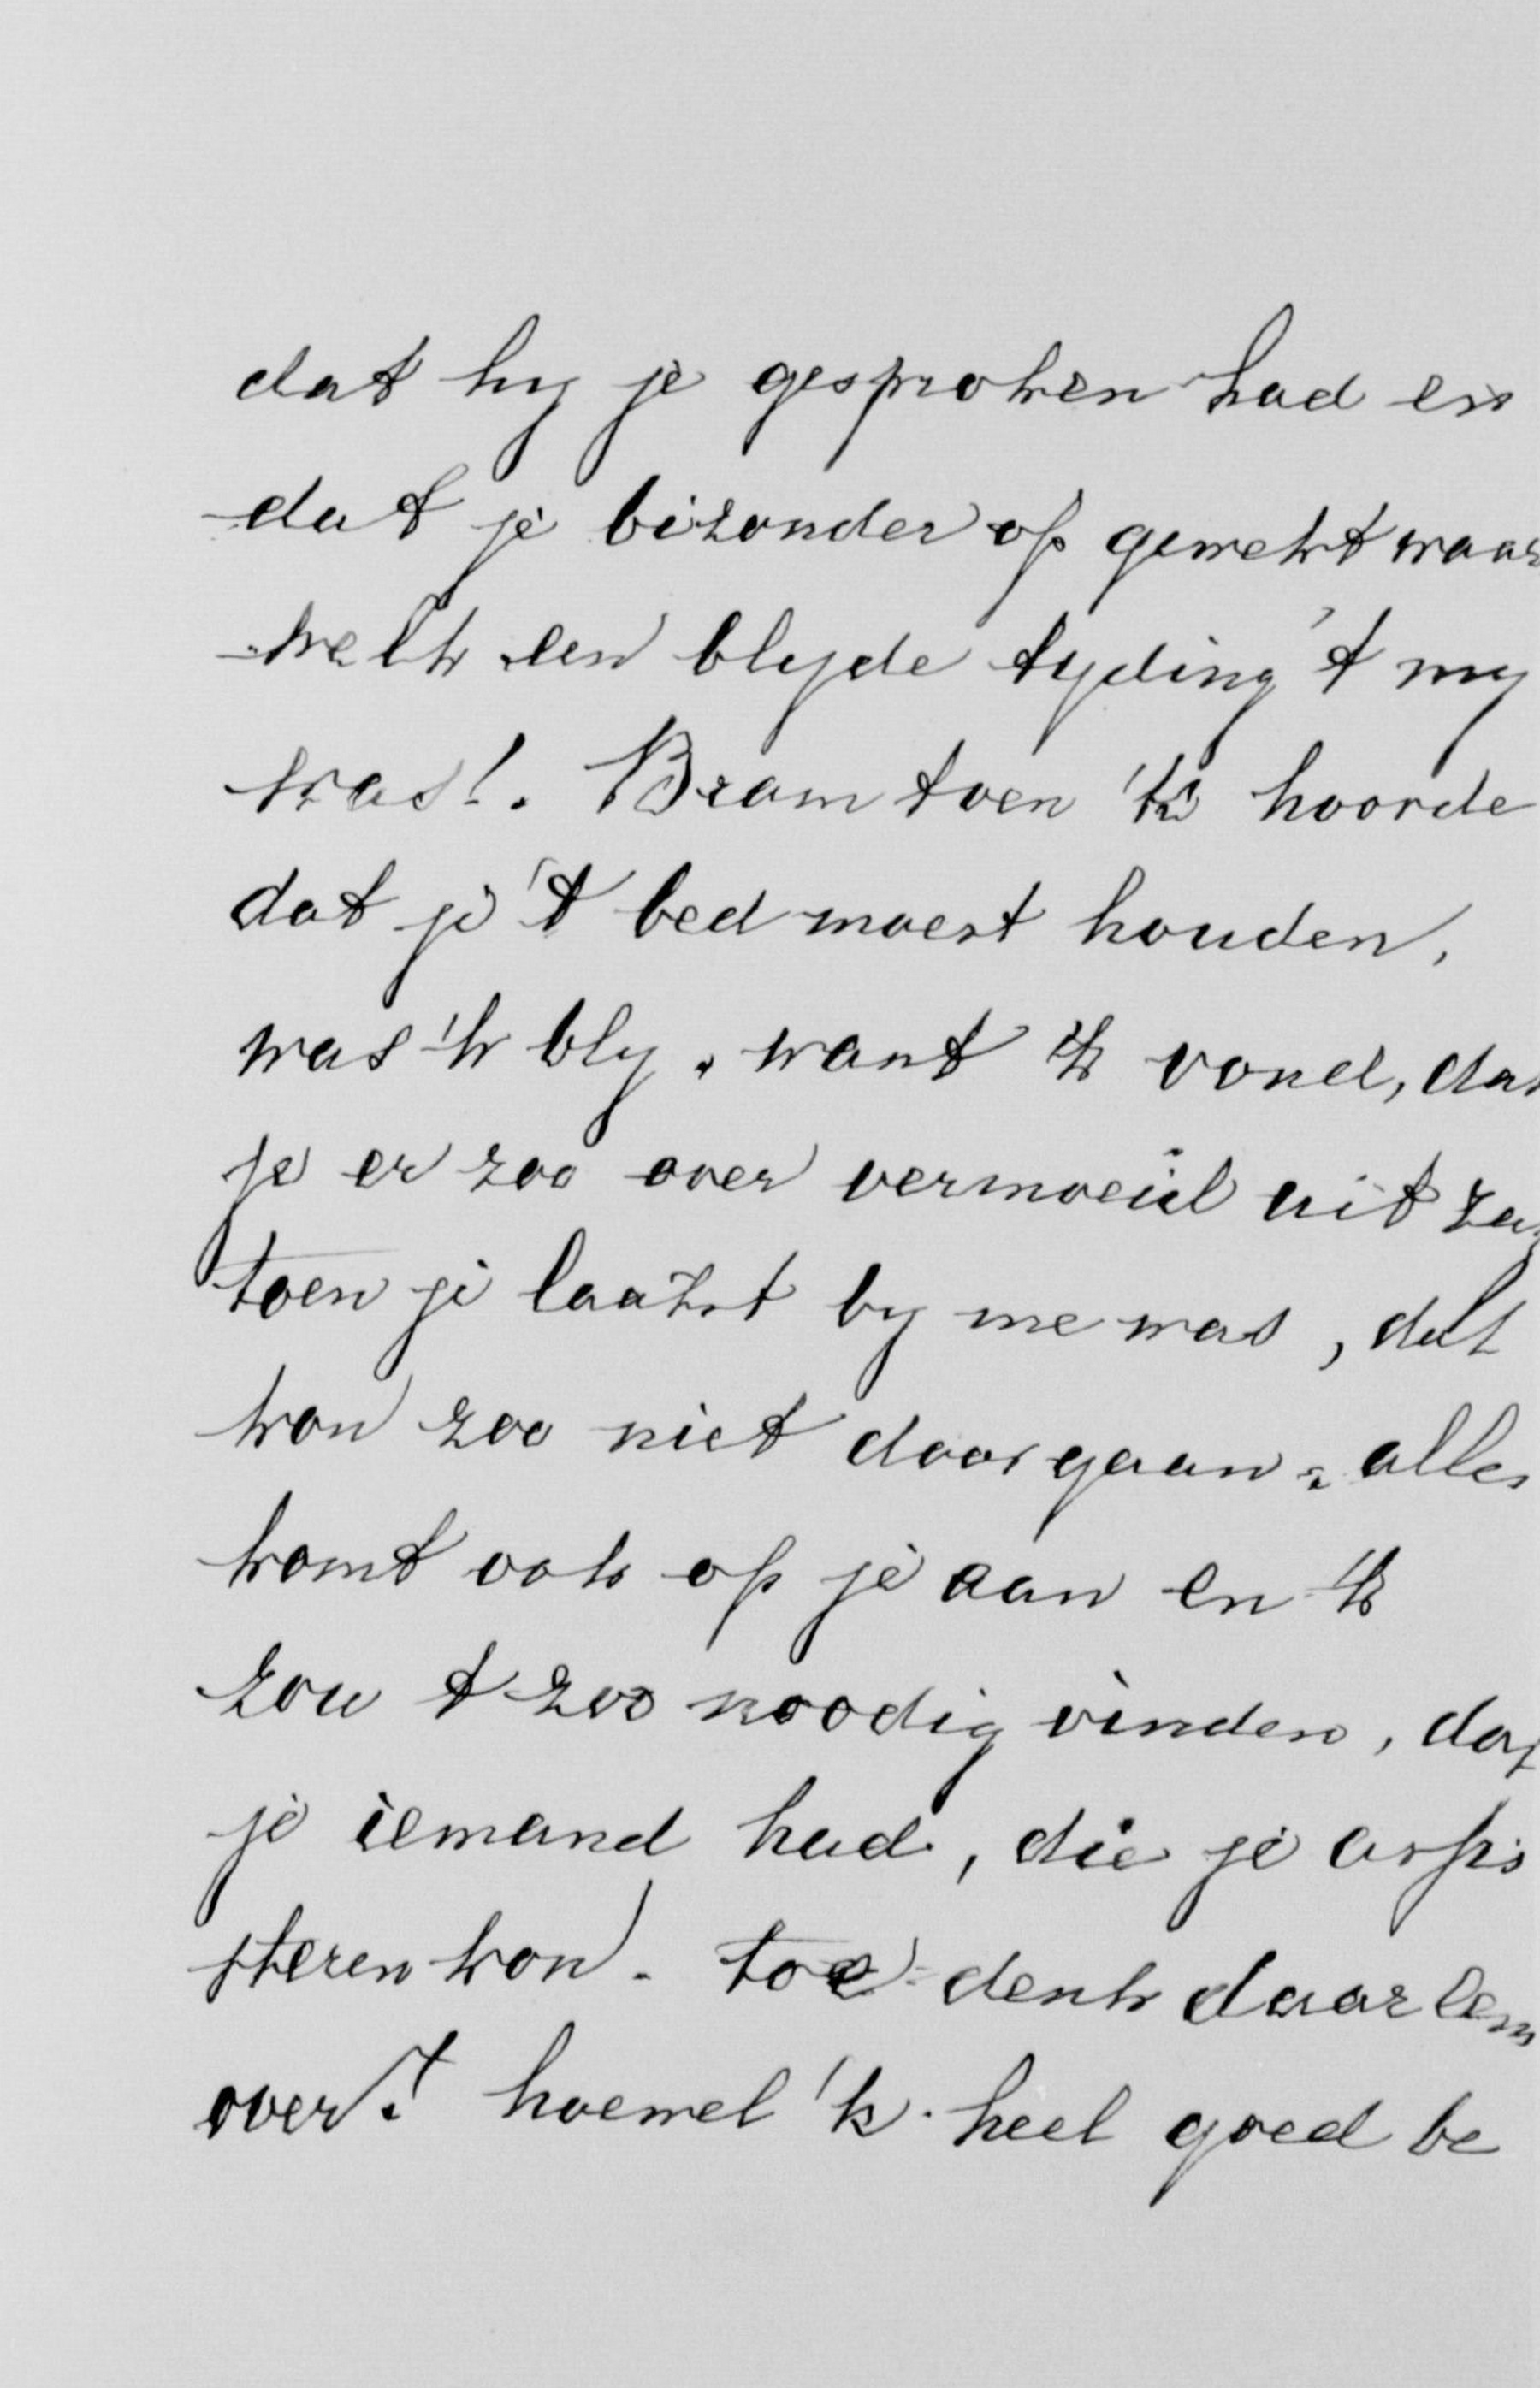 dat hy je gesproken had en
dat je bizonder op gewekt waar
welk een blyde tyding 't my
was!. Bram toen 'k hoorde
dat je 't bed moest houden,
was 'k bly, want 'k vond, dat
je er zoo over vermoeid uit zag
toen je laatst by me was, dat
kon zoo niet doorgaan, alles
komt ook op je aan en 'k
zou 't zoo noodig vinden, dat
je iemand had, die je assis
steren kon. toe denk daar eens
over! hoewel 'k heel goed be